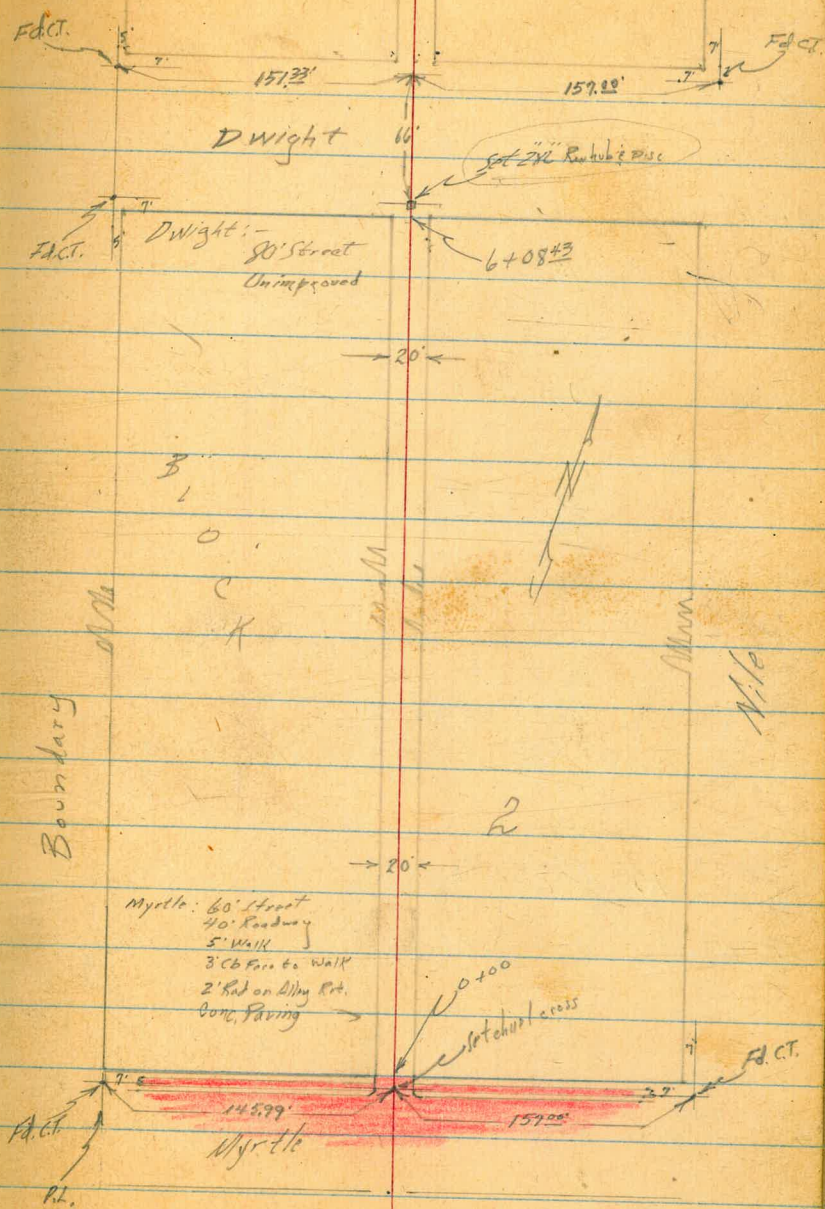 Fd.C.T.
5'
7'
7'
7'
Fd.C.T.
151.33'
157.00'
Dwight
66'
Set 2"x2" Rwhub & Disc
7'
5'
Fd.C.T.
Dwight:-
80' Street
Unimproved
6+08 43
20'
N
B
L
O
C
K
2
Boundary
Nile
20'
Myrtle: 60' Street
40' Roadway
5' Walk
3' Cb Face to Walk
2' Rad on Alley Ret.
Conc. Paving
0+00
Set chisel cross
7'
Fd.C.T.
7'
7'
145.99'
157.00'
Fd.C.T.
Myrtle
P.L.